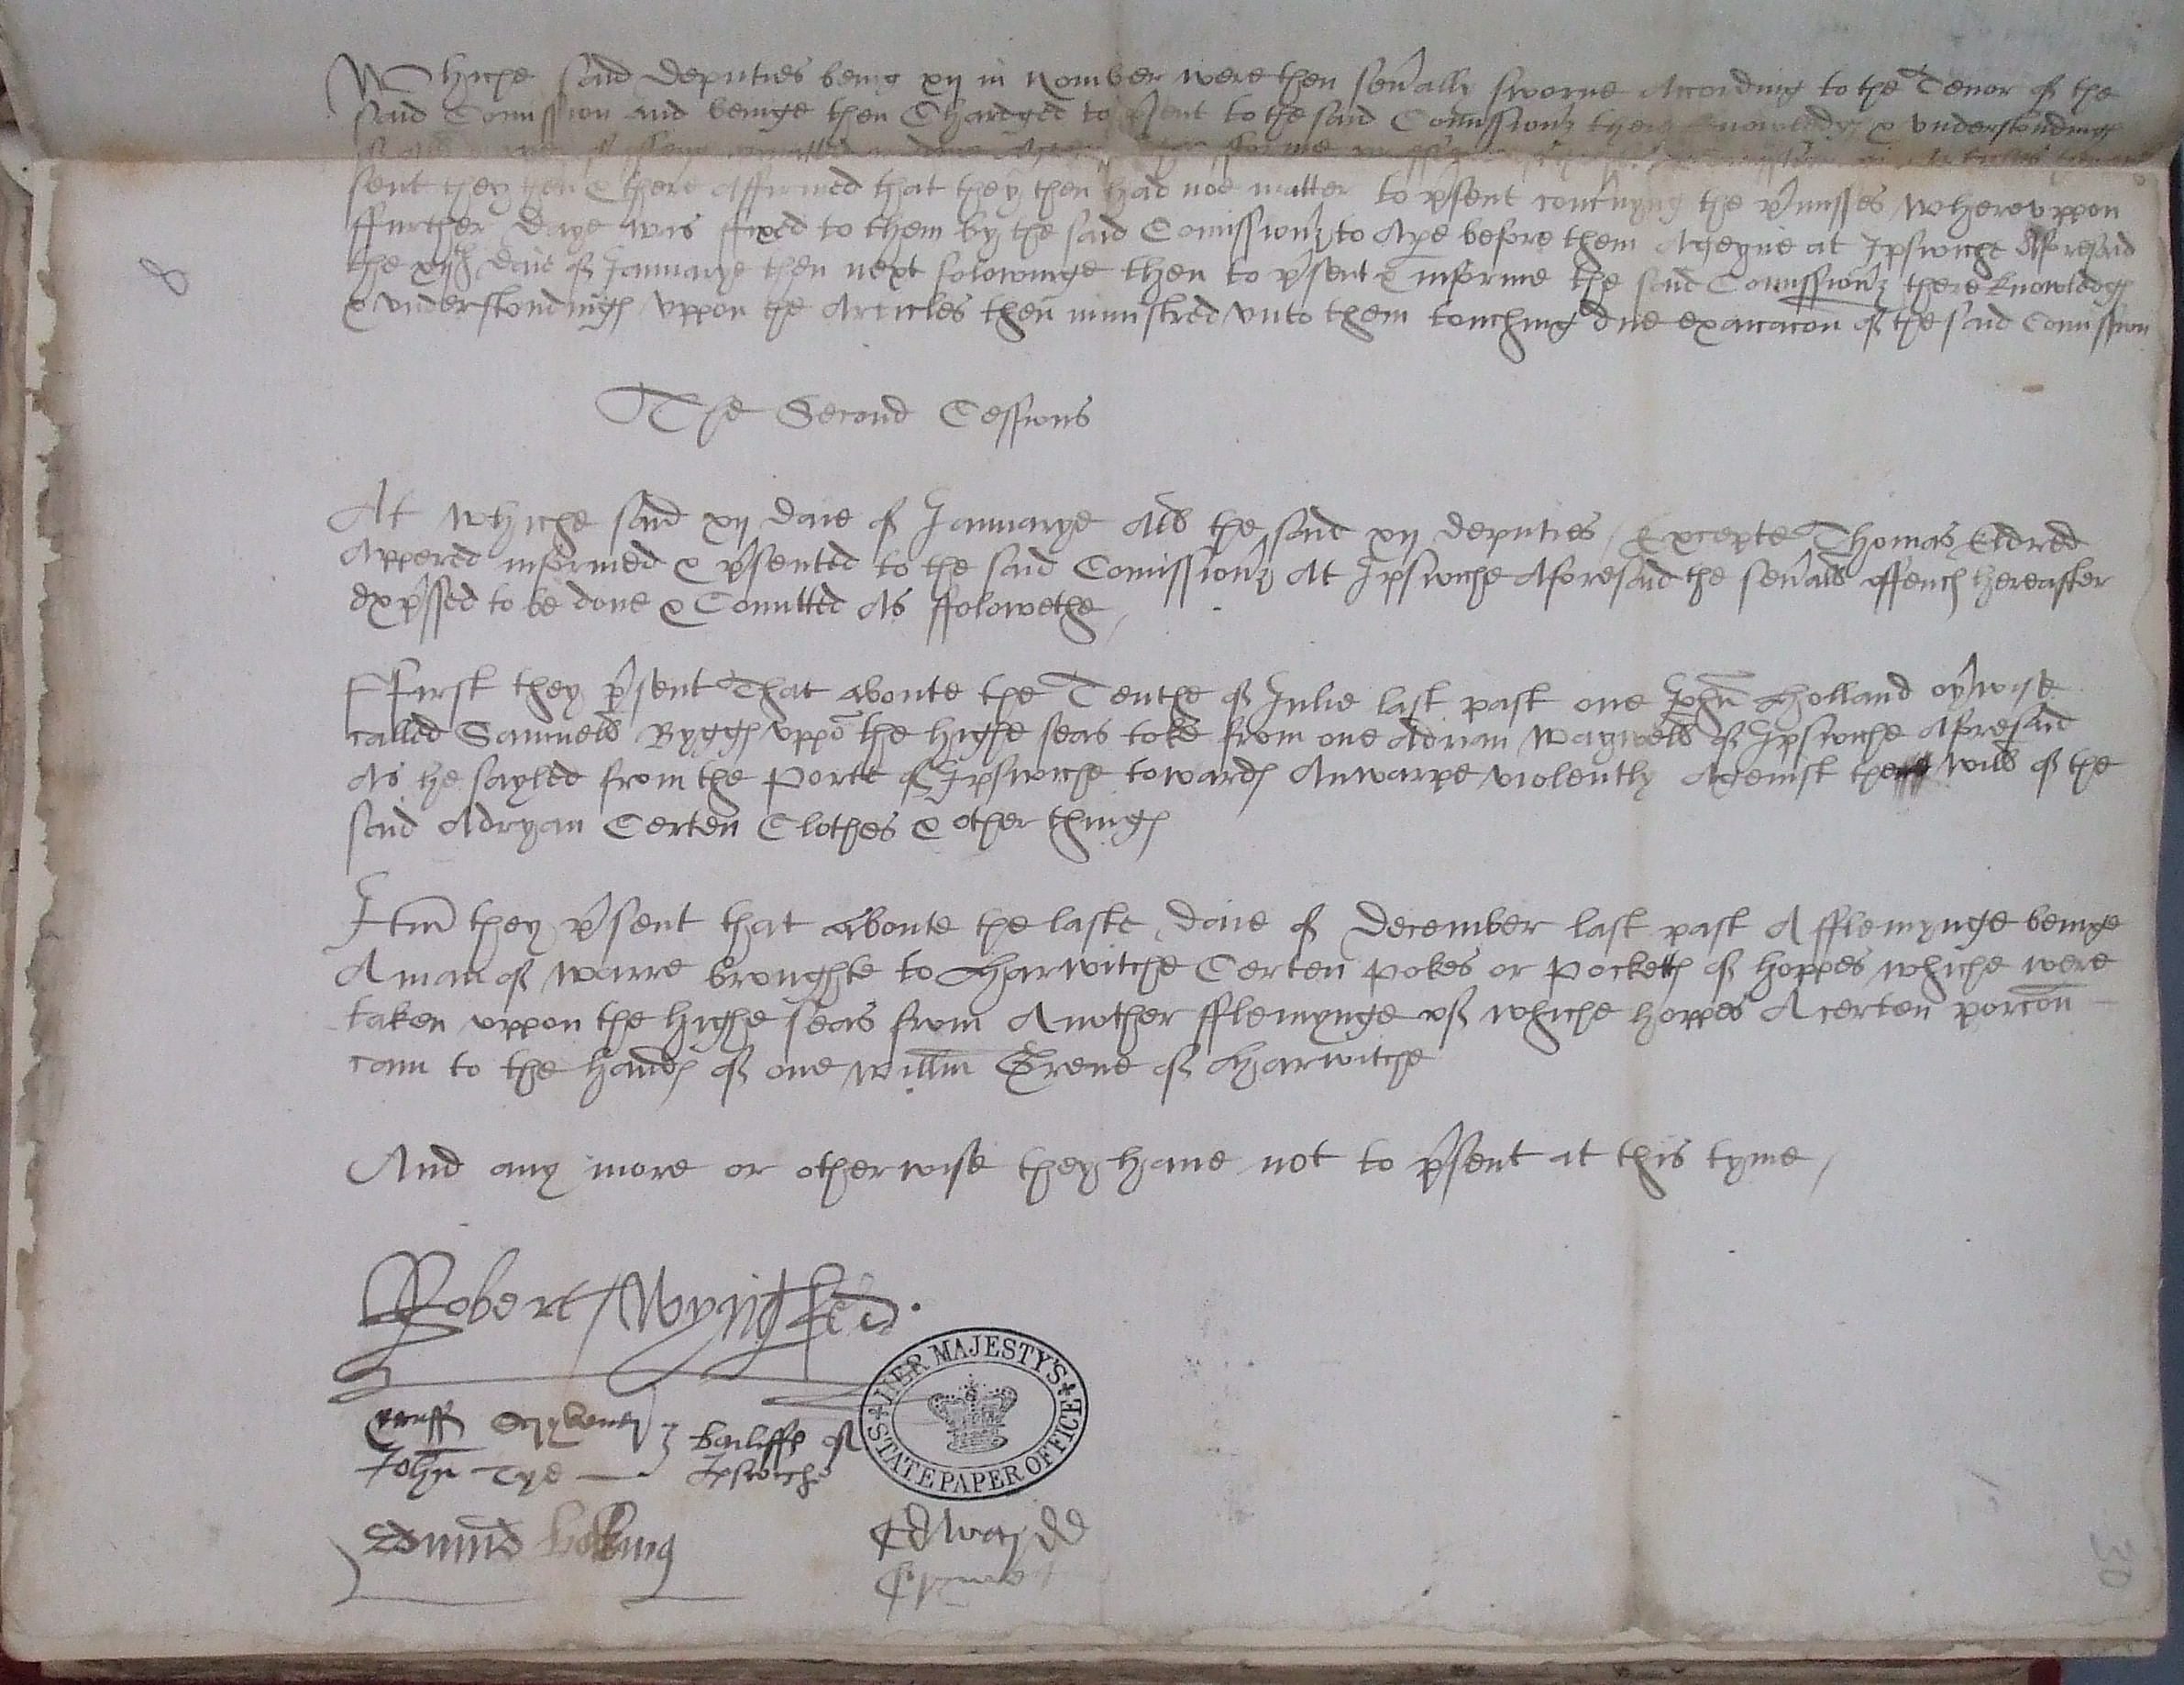 Whiche said deputies being xij in nomber were then sev'ally sworne According to the Tenor of the
said Comission and beinge then Chardged to p'sent to the said Comission's there knowledg & understonding
sent they then & there Affirmed that they then had noe matter to p'sent conc'nyng the p'misses whereuppon
ffurther daye was ffixed to them by the said Comission's to Ape before them Ageyne at Ipswiche Aforesaid
the xijth daie of Januarye then next folowinge then to p'sent & informe the said Comission's there knowledg
& understondings uppon the Articles then ministred unto them touching due exaiacon of the said Comission
The Second Cessions
At whiche said xij daie of Januarye All the said xij deputies / Excepte Thomas Eldred
Appered informed & p'sented to the said Comission's At Ipswiche Aforesaid the sev'all offenc hereafter
exp'ssed to be done & Comitted As ffolowethe /
Ffirst they p'sent That aboute the Tenthe of Julie last past one John Holland oy'wise
called Samuell Byggs uppo the highe seas toke from one Adrian of Ipswiche Aforesaid
As he sayled from the Porte of Ipswiche towards Anwarpe violently Ageinst the will of the
said Adryan Certen Clothes & other things
Itm they p'sent that aboute the laste daie of December last past A fflemynge beinge
A man of warre broughte to Harwitche Certen pokes or pocketts of hoppes whiche were
taken uppon the highe seas from Another fflemynge of whiche hoppes A certen porcon
cam to the hands of one Willm Grene of Harwitche
And any more or otherwise they have not to p'sent at this tyme /
Robert Wyngfeld
bailiffs of
John Tye Ipswiche
Edmund
Edward
HER MAJESTY'S STATE PAPER OFFICE
8
30